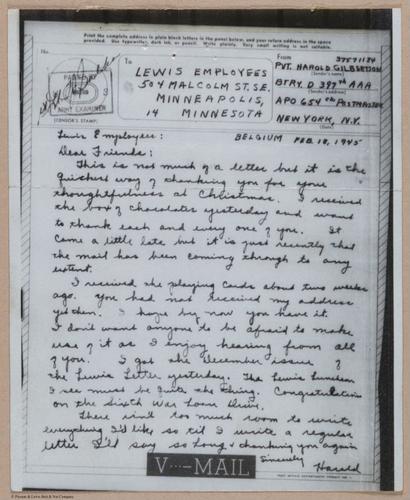 Print the complete address in plain block letters in the panel below, and your return address in the space
provided. Use typewriter, dark ink, or pencil. Write plainly. Very small writing is not suitable.
No.
To
LEWIS EMPLOYEES
504 MALCOLM ST. SE.
MINNEAPOLIS,
14 MINNESOTA
From
37571184
PVT. HAROLD GILBERTSON
(Sender's name)
BTRY. D 397th AAA
(Sender's address)
APO 654 % POSTMASTER
NEW YORK, N.Y.
(Date)
PASSED BY
ARMY EXAMINER
(CENSOR'S STAMP)
Lewis Employees: BELGIUM FEB. 18, 1945
Dear Friends:
This is not much of a letter but it is the
quickest way of thanking you for your
thoughtfulness at Christmas. I received
the box of chocolates yesterday and want
to thank each and every one of you. It
came a little late but it is just recently that
the mail has been coming through to any
extent.
I received the playing cards about two weeks
ago. You had not received my address
yet then. I hope by now you have it.
I don't want anyone to be afraid to make
use of it as I enjoy hearing from all
of you. I got the December issue of
the Lewis Letter yesterday. The Lewis Luncheon
I see must be quite the thing. Congratulations
on the Sixth War Loan Drive.
There isn't too much room to write
everything I'd like so til I write a regular
letter I'll say so long & thanking you again
Sincerely
Harold
V···–MAIL